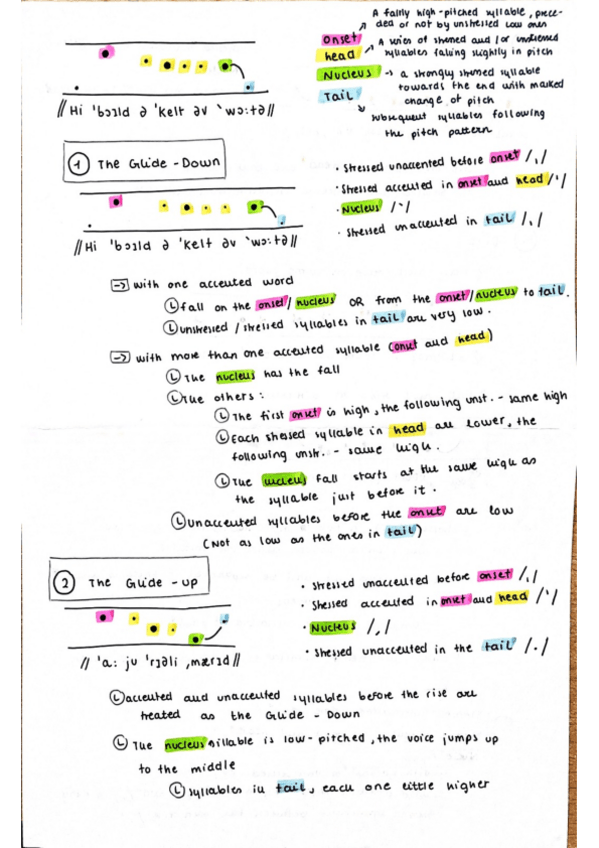 A fairly high-pitched syllable, prece-
ded or not by unstressed low ones
onset
A series of stressed and/or unstressed
head
syllables falling slightly in pitch
Nucleus → a strongly stressed syllable
towards the end with marked
change of pitch
Tail
subsequent syllables following
the pitch pattern
// Hi ˈbɔɪld ə ˈkelt əv ˋwɔːtə //
① The Glide-Down
· Stressed unaccented before onset /ˌ/
· Stressed accented in onset and head /ˈ/
· Nucleus /ˋ/
· Stressed unaccented in tail /ˌ/
// Hi ˈbɔɪld ə ˈkelt əv ˋwɔːtə //
→ with one accented word
fall on the onset/nucleus OR from the onset/nucleus to tail.
unstressed/stressed syllables in tail are very low.
→ with more than one accented syllable (onset and head)
The nucleus has the fall
The others:
The first onset is high, the following unst. - same high
Each stressed syllable in head are lower, the
following unstr. - same high.
The nucleus fall starts at the same high as
the syllable just before it.
Unaccented syllables before the onset are low
(Not as low as the ones in tail)
② The Glide-up
· Stressed unaccented before onset /ˌ/
· Stressed accented in onset and head /ˈ/
· Nucleus /ˏ/
· Stressed unaccented in the tail /·/
// ˈɑː ju ˈrɪəli ˏmærɪd //
accented and unaccented syllables before the rise are
treated as the Glide-Down
The nucleus sillable is low-pitched, the voice jumps up
to the middle
syllables in tail, each one little higher